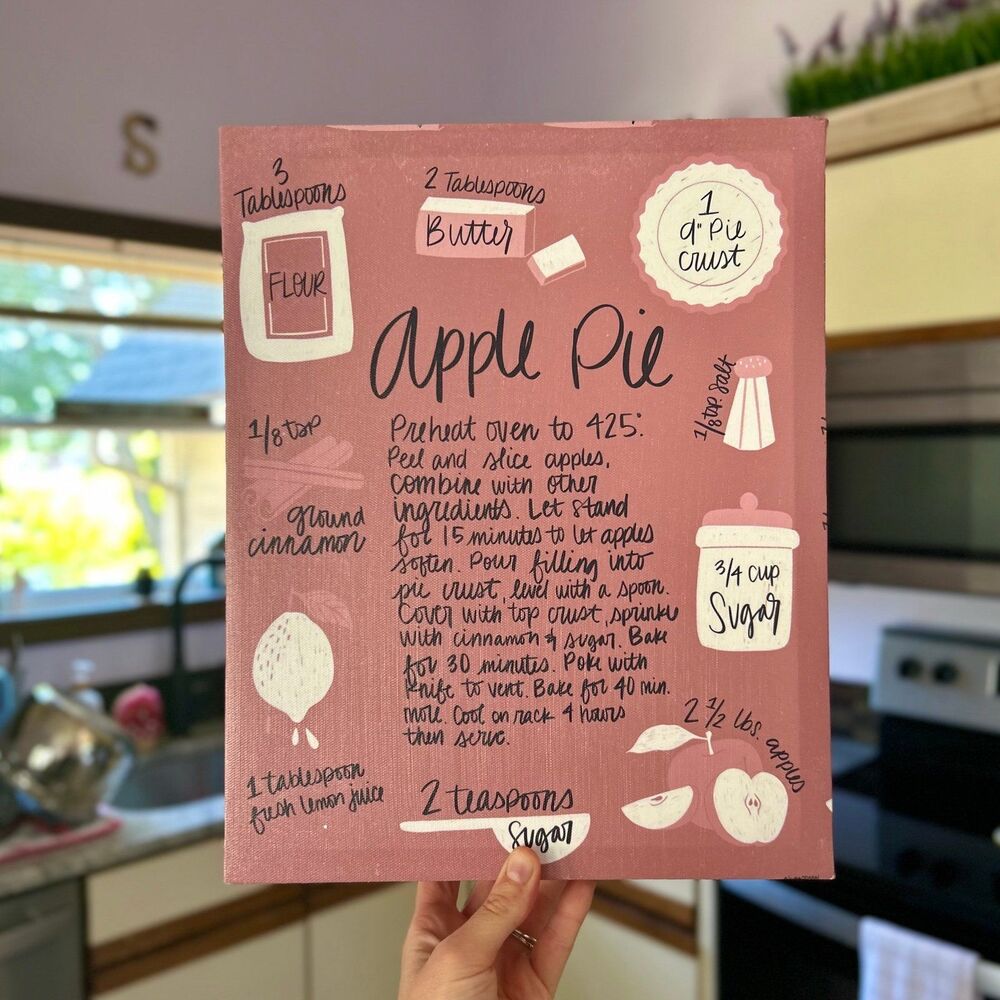 S
3
Tablespoons
FLOUR
2 Tablespoons
Butter
1
9" Pie
crust
Apple Pie
1/8 tsp salt
1/8 tsp
ground
cinnamon
Preheat oven to 425°.
Peel and slice apples,
combine with other
ingredients. Let stand
for 15 minutes to let apples
soften. Pour filling into
pie crust, level with a spoon.
Cover with top crust, sprinkle
with cinnamon & sugar. Bake
for 30 minutes. Poke with
knife to vent. Bake for 40 min.
more. Cool on rack 4 hours
then serve.
3/4 cup
Sugar
2 1/2 lbs. apples
1 tablespoon
fresh lemon juice
2 teaspoons
Sugar